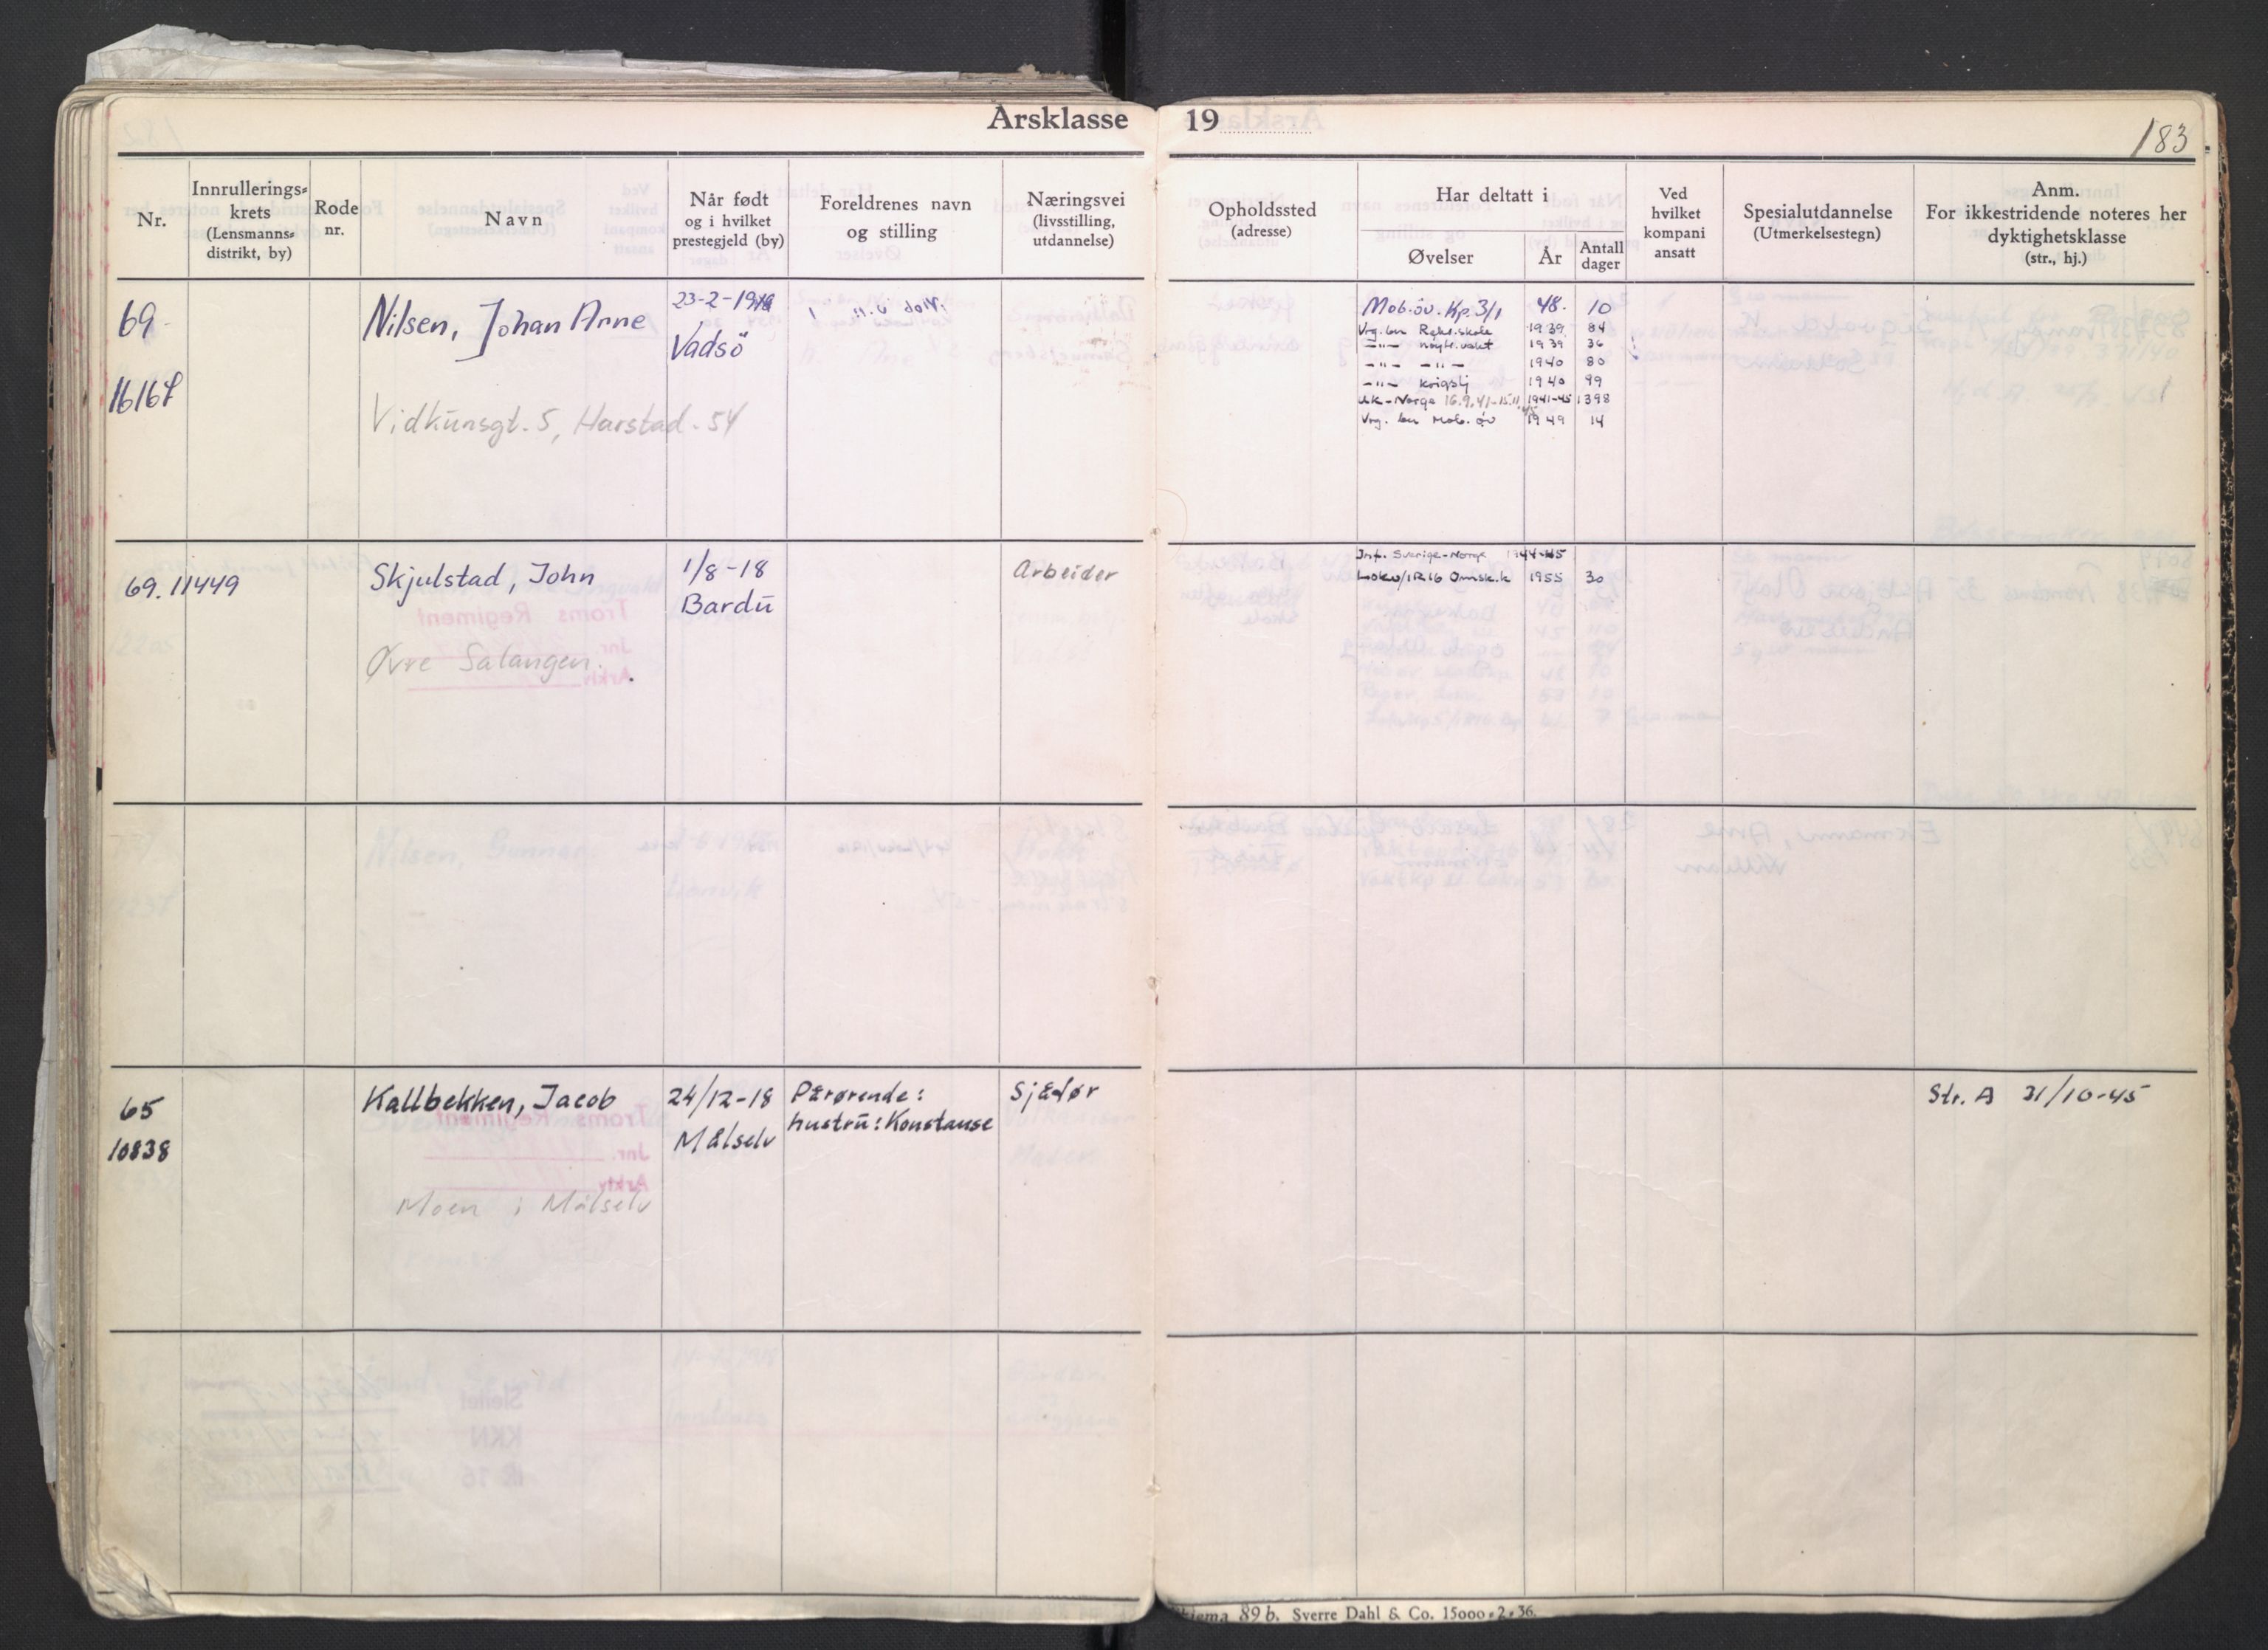 Årsklasse 19
183
Nr.
Innrullerings-
krets
(Lensmanns-
distrikt, by)
Rode
nr.
Navn
Når født
og i hvilket
prestegjeld (by)
Foreldrenes navn
og stilling
Næringsvei
(livsstilling,
utdannelse)
Opholdssted
(adresse)
Har deltatt i
Øvelser
År
Antall
dager
Ved
hvilket
kompani
ansatt
Spesialutdannelse
(Utmerkelsestegn)
Anm.
For ikkestridende noteres her
dyktighetsklasse
(str., hj.)
69
Nilsen, Johan Arne
23-2-
Vadsö
Vidkunsgt. 5, Harstad. 54
Mob.öv. Kp. 3/1 48. 10
Vrg. bn Rekr.skole 1939 84
-"- nøytr.vakt 1939 36
-"- -"- 1940 80
-"- krigstj 1940 99
UK-Norge 16.9.41-15.11.45 1941-45 1398
Vrg. bn Mob. öv 1949 14
69. 11449
Skjulstad, John
1/8-18
Bardu
Arbeider
Øvre Salangen.
Inf. Sverige-Norge 1944-45
Lokv/IR16 Omsk.k 1955 30
65
10838
Kallbekken, Jacob
24/12-18
Målselv
Pårørende:
hustru: Konstanse
Sjåfør
Moen i Målselv
Str. A 31/10-45
89 b. Sverre Dahl & Co. 15000.2.36.